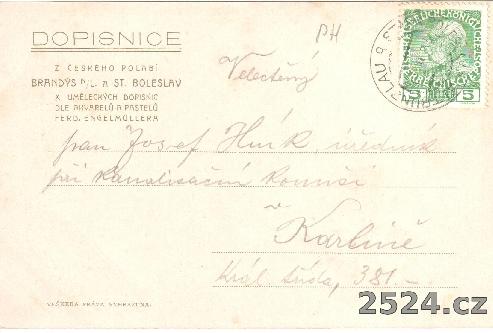 DOPISNICE
Z ČESKÉHO POLABÍ
BRANDÝS N/L. A ST. BOLESLAV
X UMĚLECKÝCH DOPISNIC
DLE AKVARELŮ A PASTELŮ
FERD. ENGELMÜLLERA
PH
Velectěný
pan Josef Hník úředník
při kanalisační komisi
v
Karlíně
Král. třída, 381 –
VEŠKERÁ PRÁVA VYHRAZENA.
5 5
2524.cz